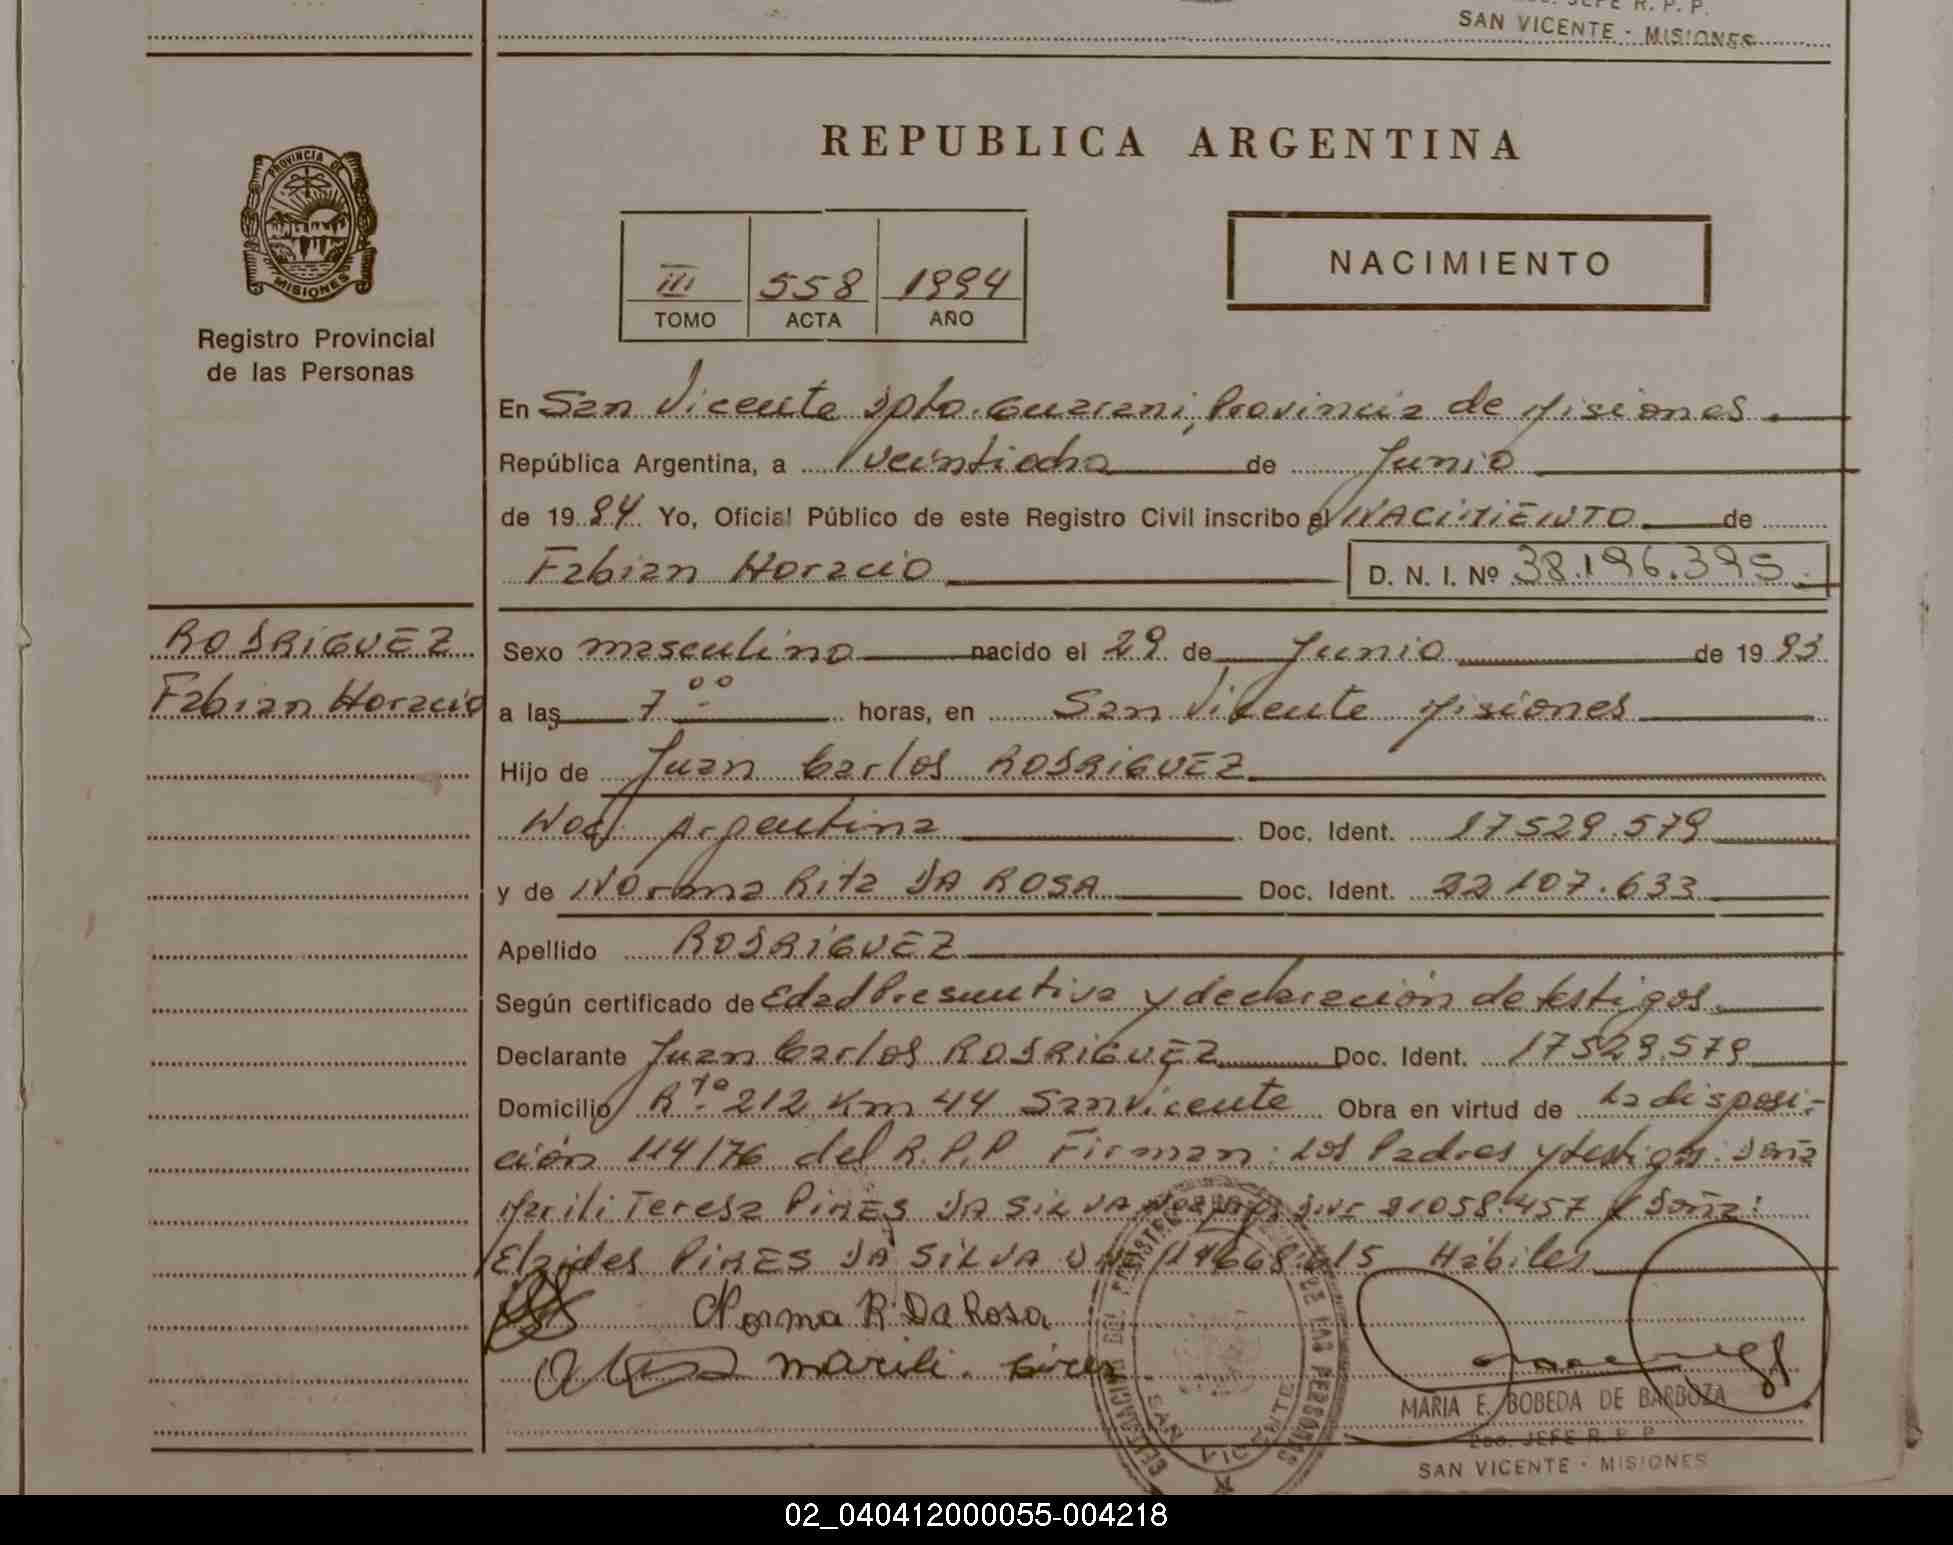 JEFE R. P. P.
SAN VICENTE - MISIONES
REPUBLICA ARGENTINA
PROVINCIA DE MISIONES
Registro Provincial
de las Personas
III 558 1994
TOMO ACTA AÑO
NACIMIENTO
En San Vicente Dpto. Guarani, Provincia de Misiones
República Argentina, a veintiocho de Junio
de 1994 Yo, Oficial Público de este Registro Civil inscribo el NACIMIENTO de
Fabian Horacio D. N. I. Nº 38.196.395.
RODRIGUEZ
Fabian Horacio
Sexo masculino nacido el 29 de Junio de 1993
a las 7 00 horas, en San Vicente Misiones
Hijo de Juan Carlos RODRIGUEZ
Nac. Argentina Doc. Ident. 17529.579
y de Norma Rita DA ROSA Doc. Ident. 22107.633
Apellido RODRIGUEZ
Según certificado de Edad Presuntiva y declaración de testigos.
Declarante Juan Carlos RODRIGUEZ Doc. Ident. 17529.579
Domicilio Rta. 212 Km 44 San Vicente Obra en virtud de La disposi-
ción 114/76 del R.P.P Firman: Los Padres y testigos: Doña
Marili Teresa PIRES DA SILVA 21058.457 y Doña:
Elzides PIRES DA SILVA Hábiles
Norma R Da Rosa
marili. Pires
DELEGACION DEL REGISTRO DE LAS PERSONAS
SAN VICENTE
MARIA E. BOBEDA DE BARBOZA
2do. JEFE R. P. P.
SAN VICENTE - MISIONES
02_040412000055-004218